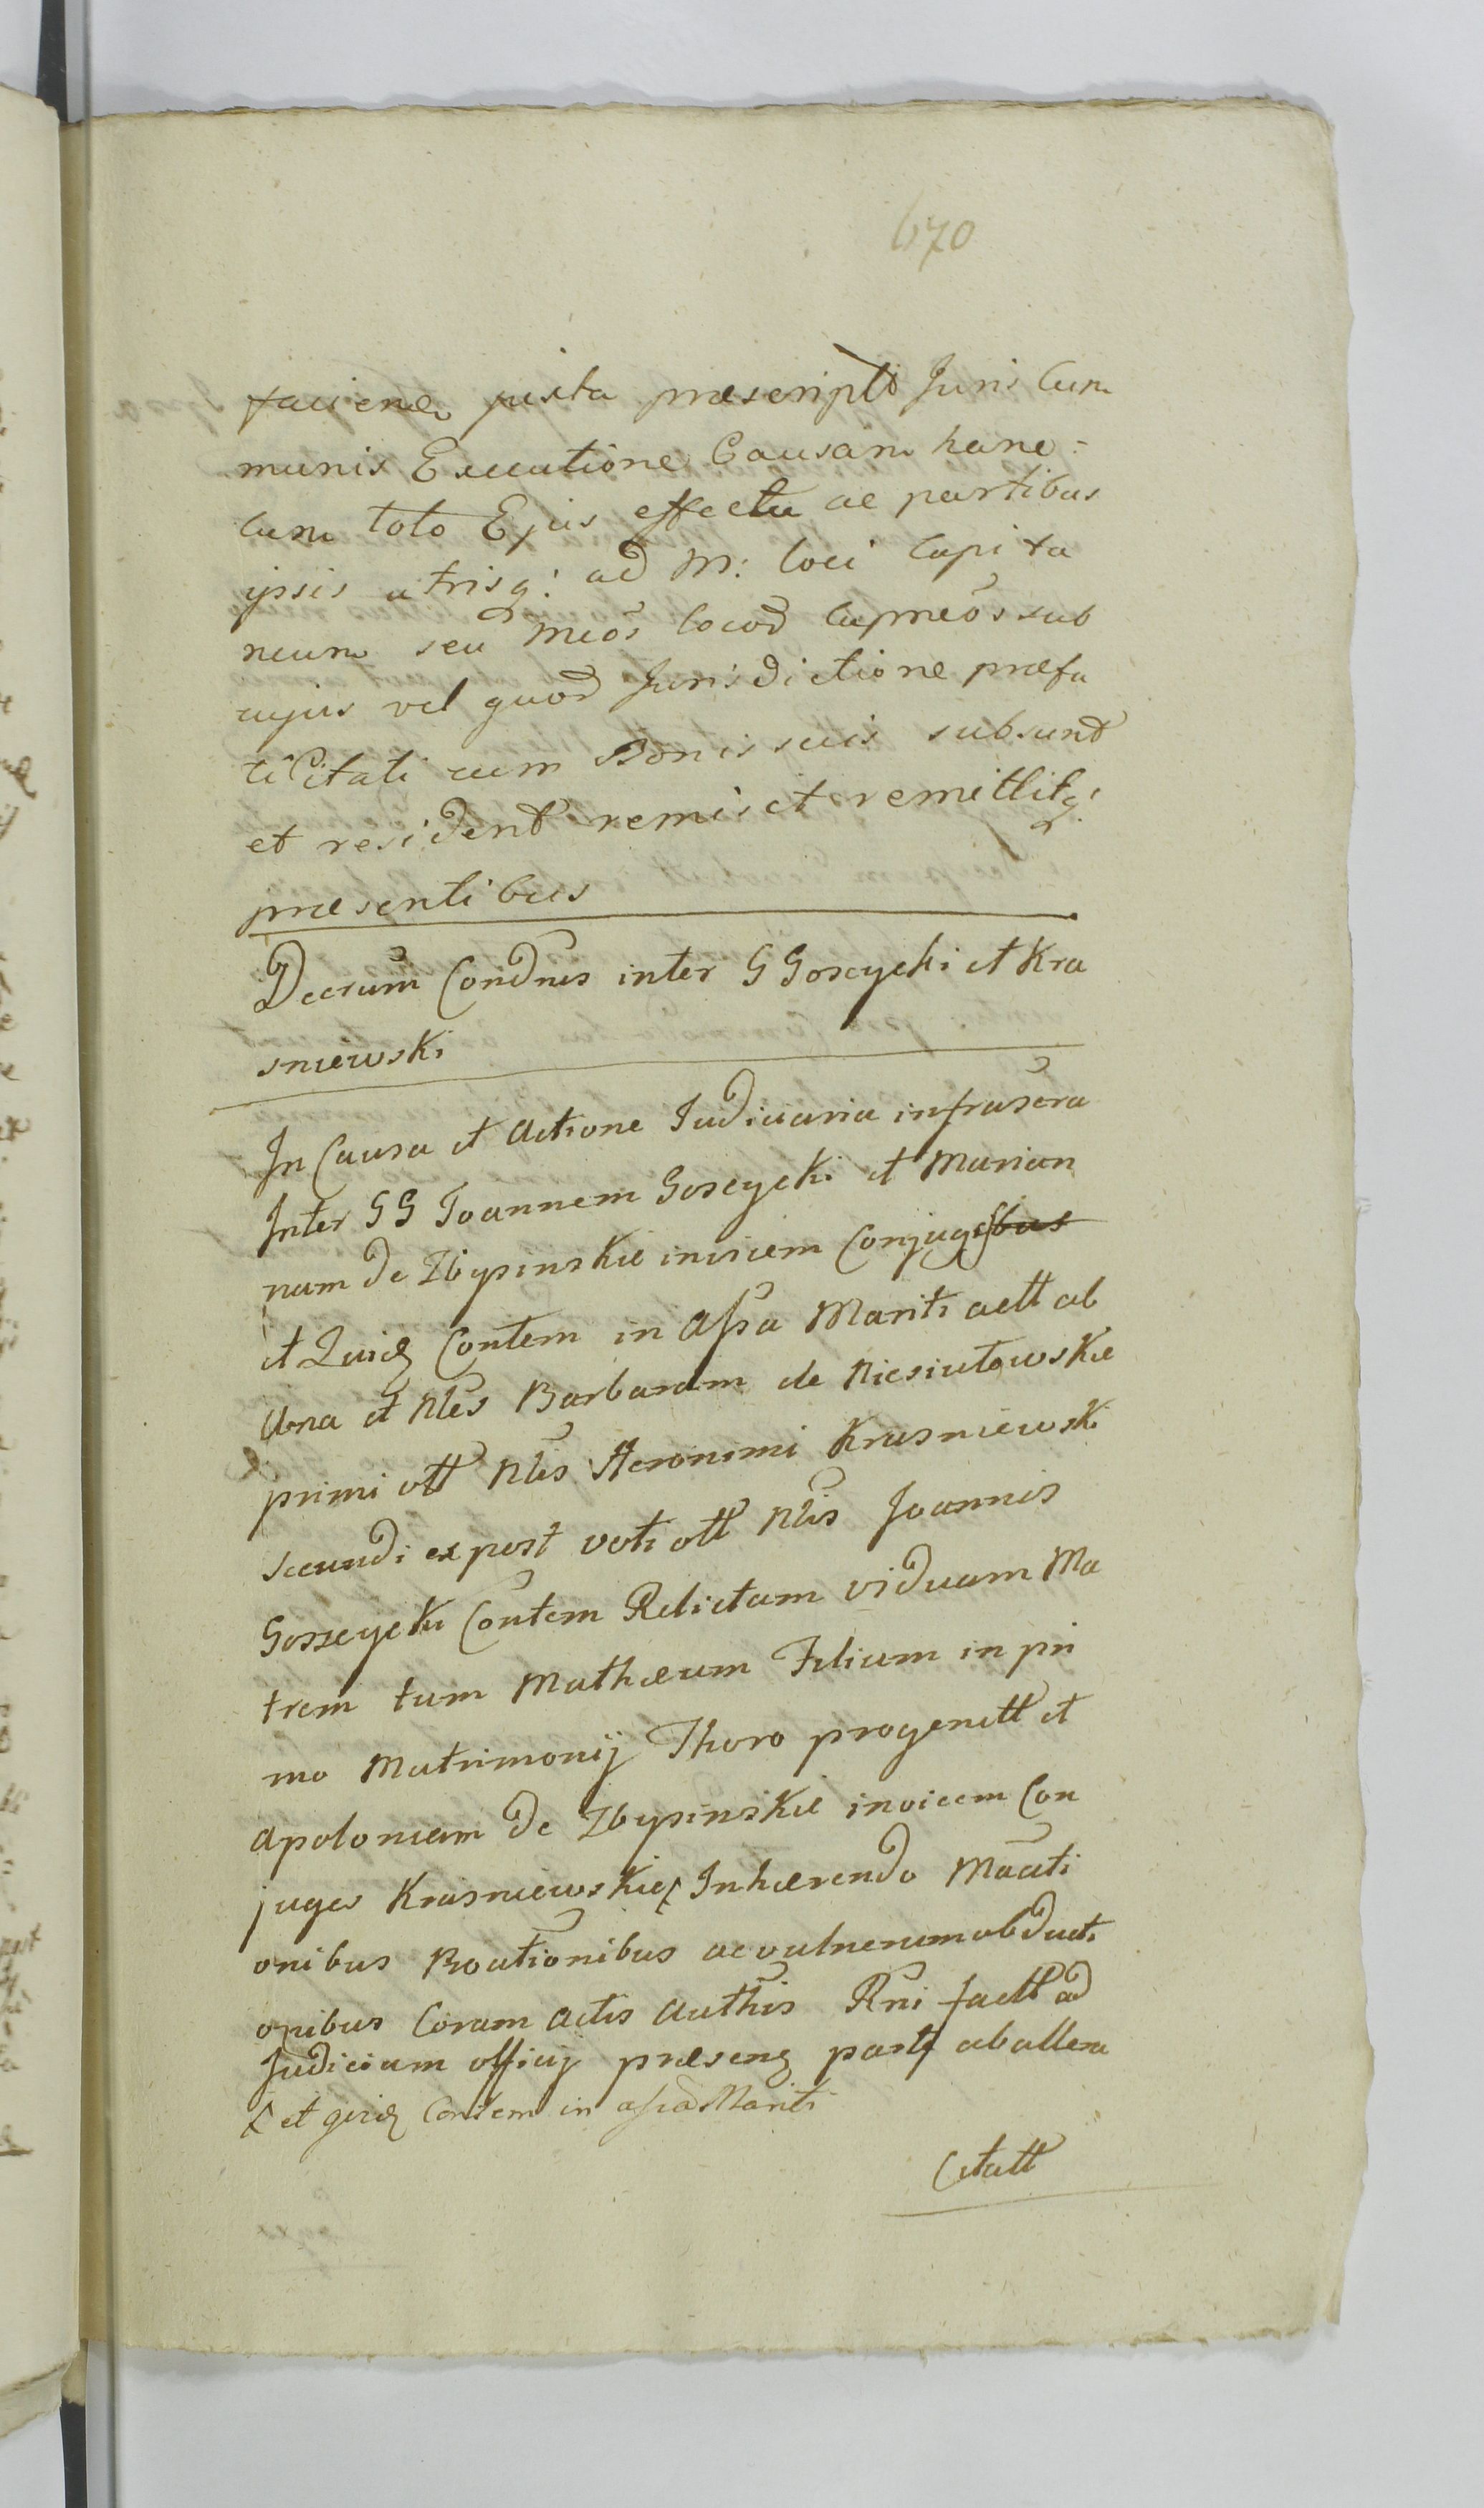 670
faciend juxta præscriptt Juris Com
munis Executione Causam hanc
cum toto Ejus effectu ac partibus
ipsis utrisq: ad M: loci Capita
neum seu Mcos locor Capneos sub
cujus vel quor Jurisdictione præfa
ti Citati cum Bonis suis subsunt
et resident remisit remittitq:
præsentibus
Decrum Condnis inter GG Goscycki et Kra
sniewski
In Causa et Actione Judiciaria infrascra
Inter GG Joannem Goscycki et Marian
nam de Zbysinskie invicem Conjuges
et Quid Contem in Assa Mariti actt ab
Una et Nles Barbaram de Niesiutowskie
primi ott Nlis Heronimi Krasniewski
secundi ex post voti ott Nlis Joannis
Goszcycki Contem Relictam viduam Ma
trem tum Mathæum Filium in pri
mo Matrimonij Thoro progenitt et
Apoloniam de Zbysinskie invicem Con
juges Krasniewskie Inhærendo Mauti
onibus Roationibus ac vulnerum obducti
onibus Coram Actis Authis Rni factt ad
Judicium officij præsens parte ab altera
et qvid Contem in assa Mariti
Citatt